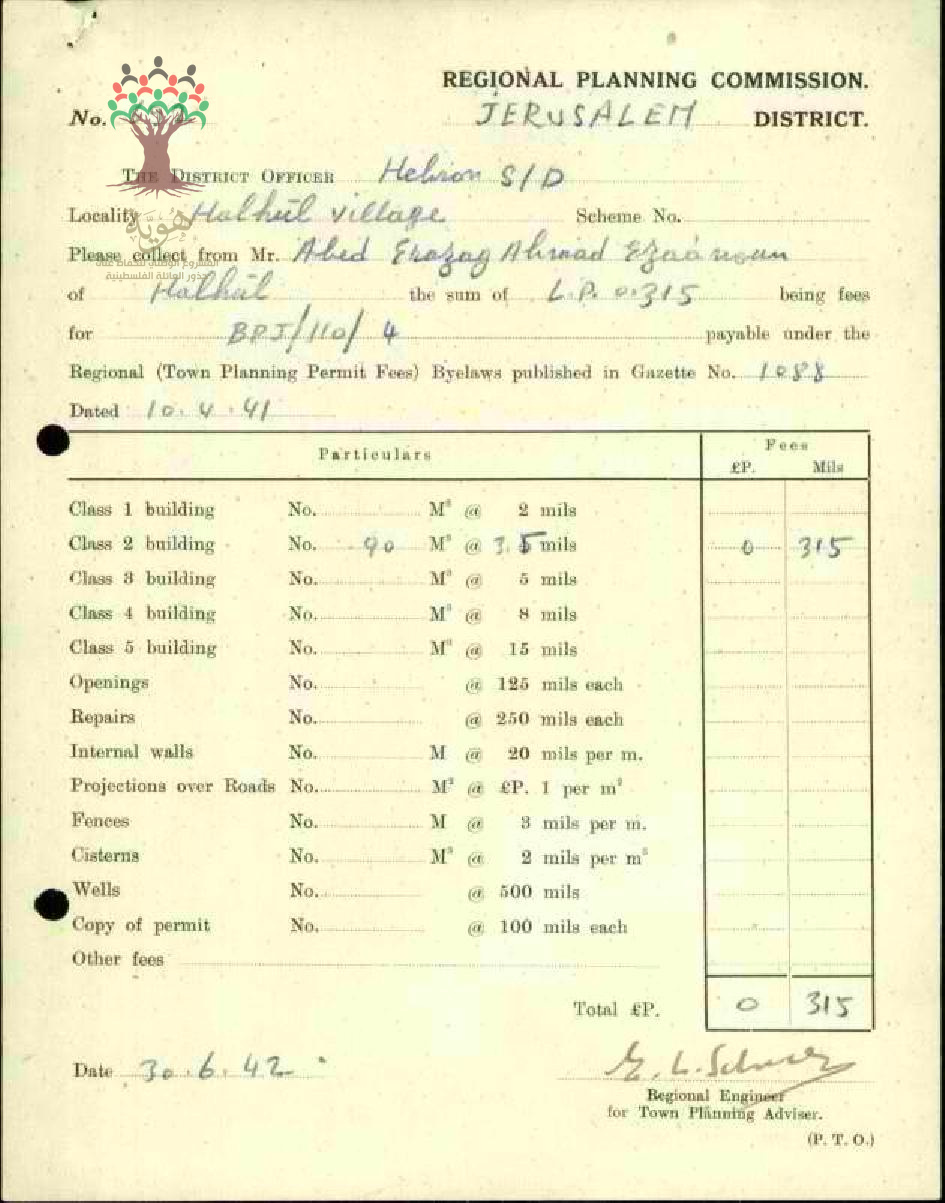 REGIONAL PLANNING COMMISSION.
No. JERUSALEM DISTRICT.
THE DISTRICT OFFICER Hebron S/D
Locality Halhūl village Scheme No.
هوية
Please collect from Mr. Abed Erazag Ahmad
جذور العائلة الفلسطينية
of Halhūl the sum of L.P. 0.315 being fees
for BPJ/110/4 payable under the
Regional (Town Planning Permit Fees) Byelaws published in Gazette No. 1088
Dated 10.4.41
Particulars Fees
£P. Mils
Class 1 building No. M³ @ 2 mils
Class 2 building No. 90 M³ @ 3.5 mils 0 315
Class 3 building No. M³ @ 5 mils
Class 4 building No. M³ @ 8 mils
Class 5 building No. M³ @ 15 mils
Openings No. @ 125 mils each
Repairs No. @ 250 mils each
Internal walls No. M @ 20 mils per m.
Projections over Roads No. M² @ £P. 1 per m²
Fences No. M @ 3 mils per m.
Cisterns No. M³ @ 2 mils per m³
Wells No. @ 500 mils
Copy of permit No. @ 100 mils each
Other fees
Total £P. 0 315
Date 30.6.42
Regional Engineer
for Town Planning Adviser.
(P. T. O.)